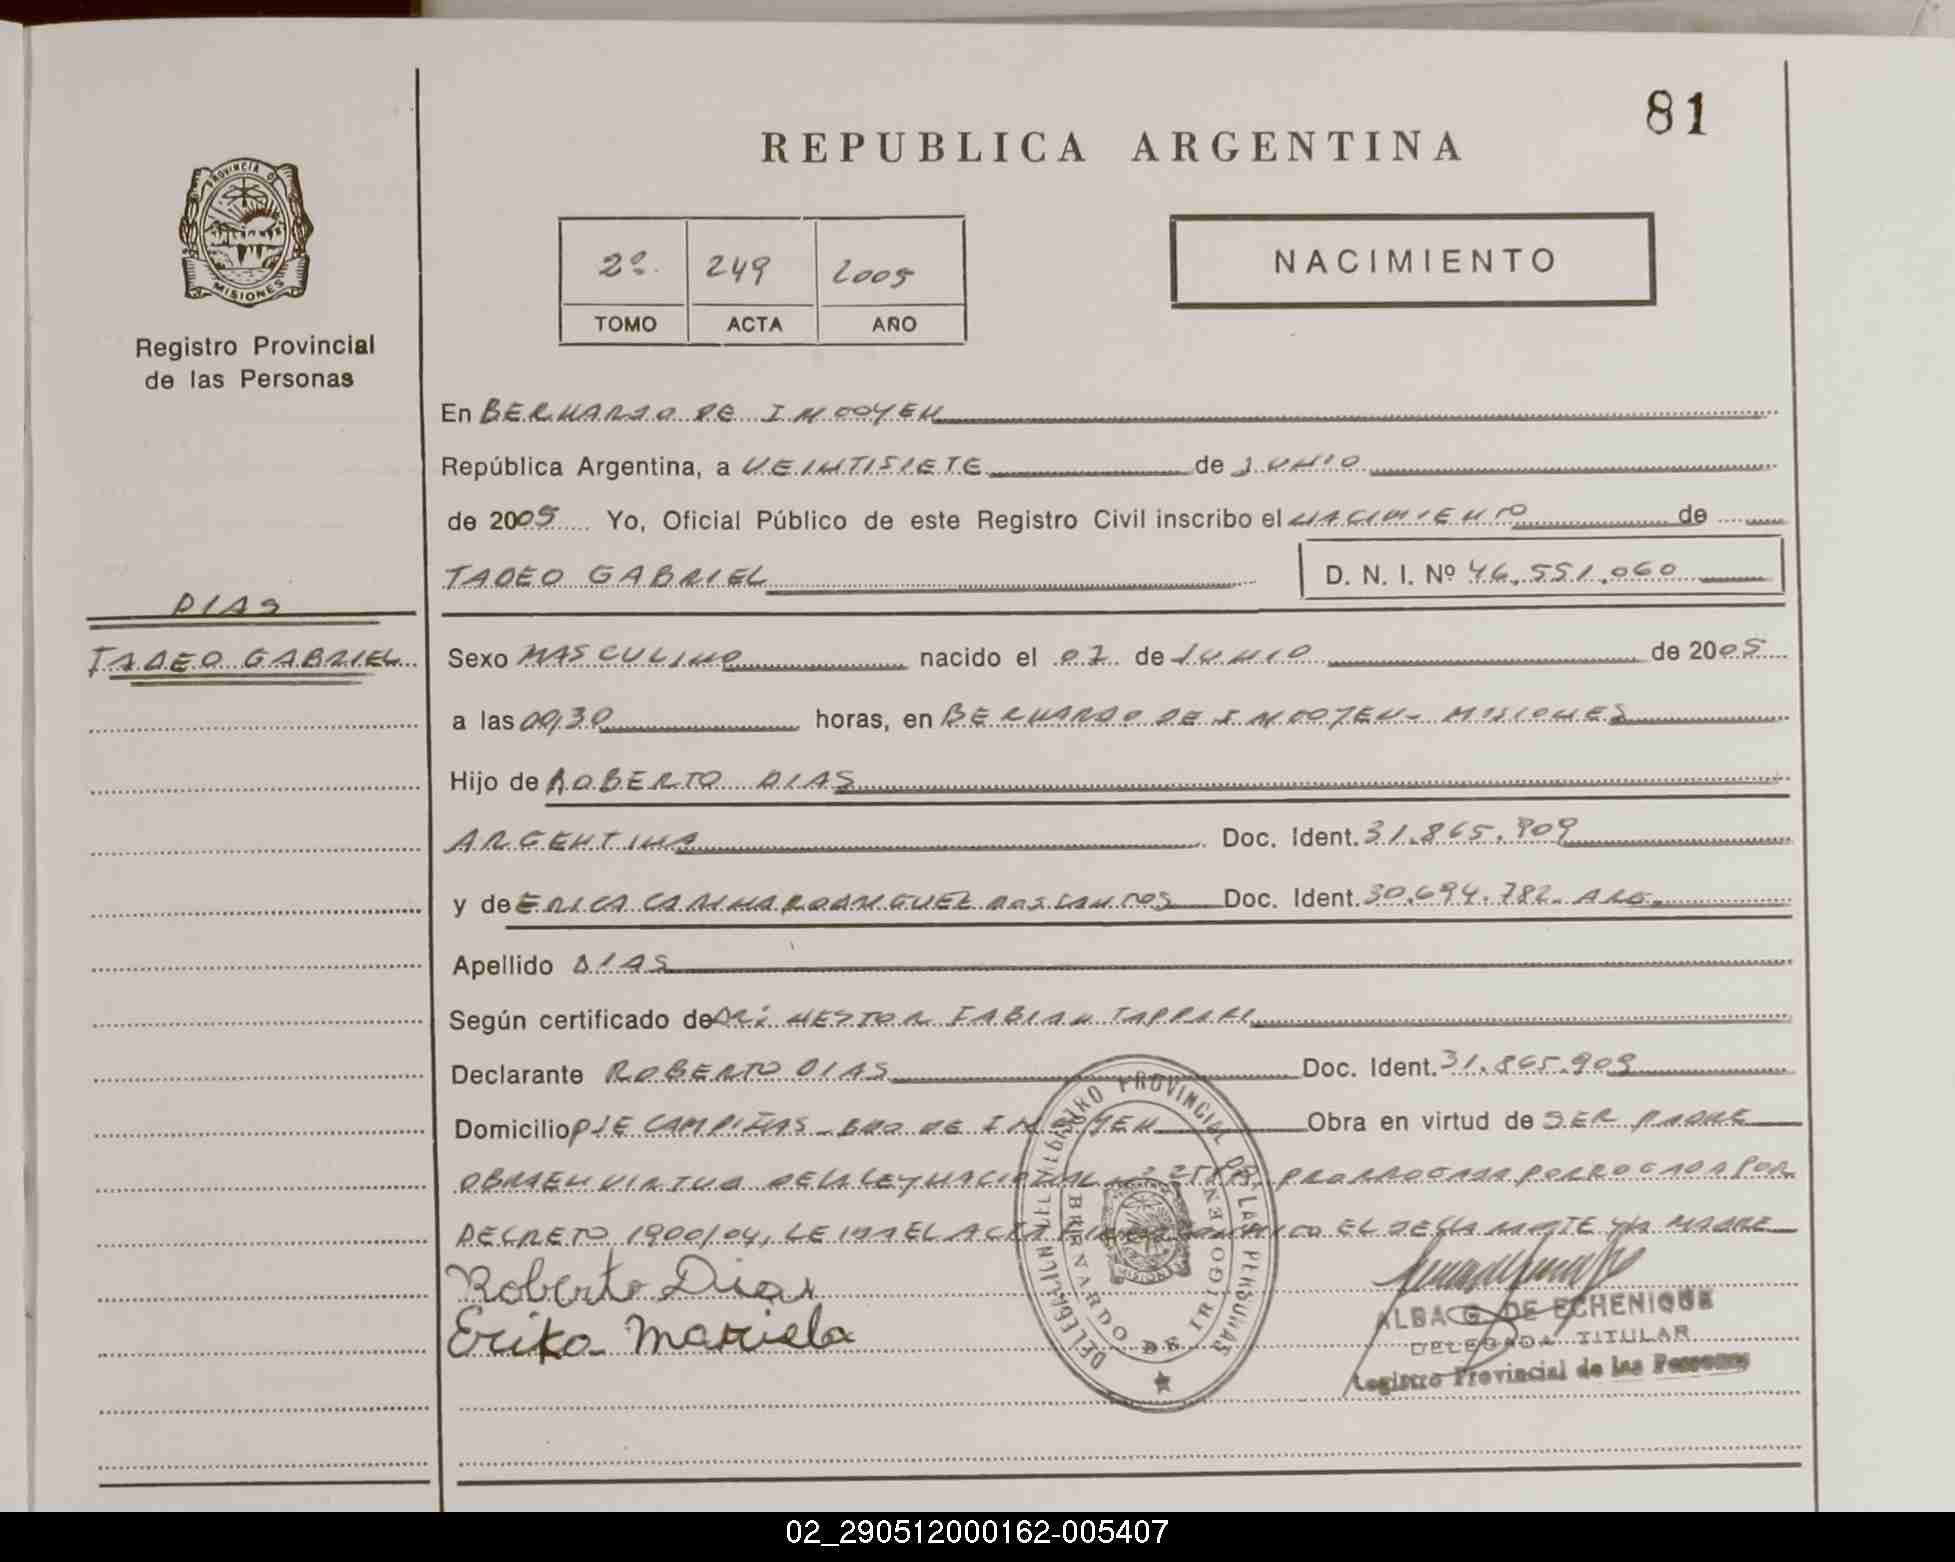 81
REPUBLICA ARGENTINA
PROVINCIA DE
MISIONES
Registro Provincial
de las Personas
2º. 249 2005
TOMO ACTA AÑO
NACIMIENTO
En BERNARDO DE IRIGOYEN
República Argentina, a VEINTISIETE de JUNIO
de 2005 Yo, Oficial Público de este Registro Civil inscribo el NACIMIENTO de
TADEO GABRIEL D. N. I. Nº 46.551.060
DIAS
TADEO GABRIEL
Sexo MASCULINO nacido el 07 de JUNIO de 2005
a las 00,30 horas, en BERNARDO DE IRIGOYEN - MISIONES
Hijo de ROBERTO DIAS
ARGENTINA Doc. Ident. 31.865.909
y de ERICA Doc. Ident. 30.694.782. ARG.
Apellido DIAS
Según certificado de DR: NESTOR FABIAN
Declarante ROBERTO DIAS Doc. Ident. 31.865.909
Domicilio PJE CAMPIÑAS - BDO DE IRIGOYEN Obra en virtud de SER PADRE
OBRA EN VIRTUD DE LA LEY NACIONAL PRORROGADA POR
DECRETO 1900/04, LEIDA EL ACTA EL DECLARANTE Y LA MADRE
Roberto Dias
Erika Mariela
DELEGACION DEL REGISTRO PROVINCIAL DE LAS PERSONAS
BERNARDO DE IRIGOYEN
MISIONES
ALBA G. DE ECHENIQUE
DELEGADA TITULAR
Registro Provincial de las Personas
02_290512000162-005407